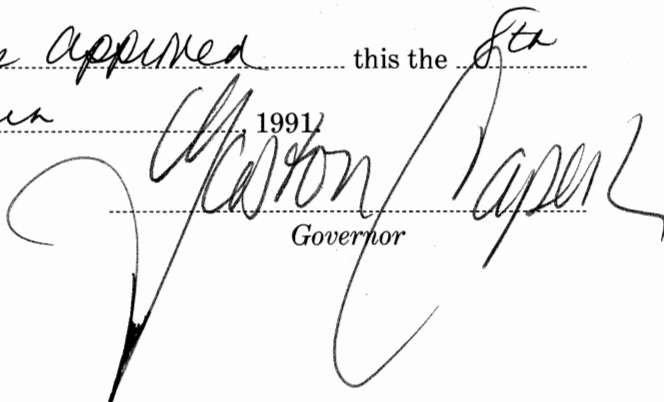 approved this the 8th
, 1991.
Gaston Caperton
Governor